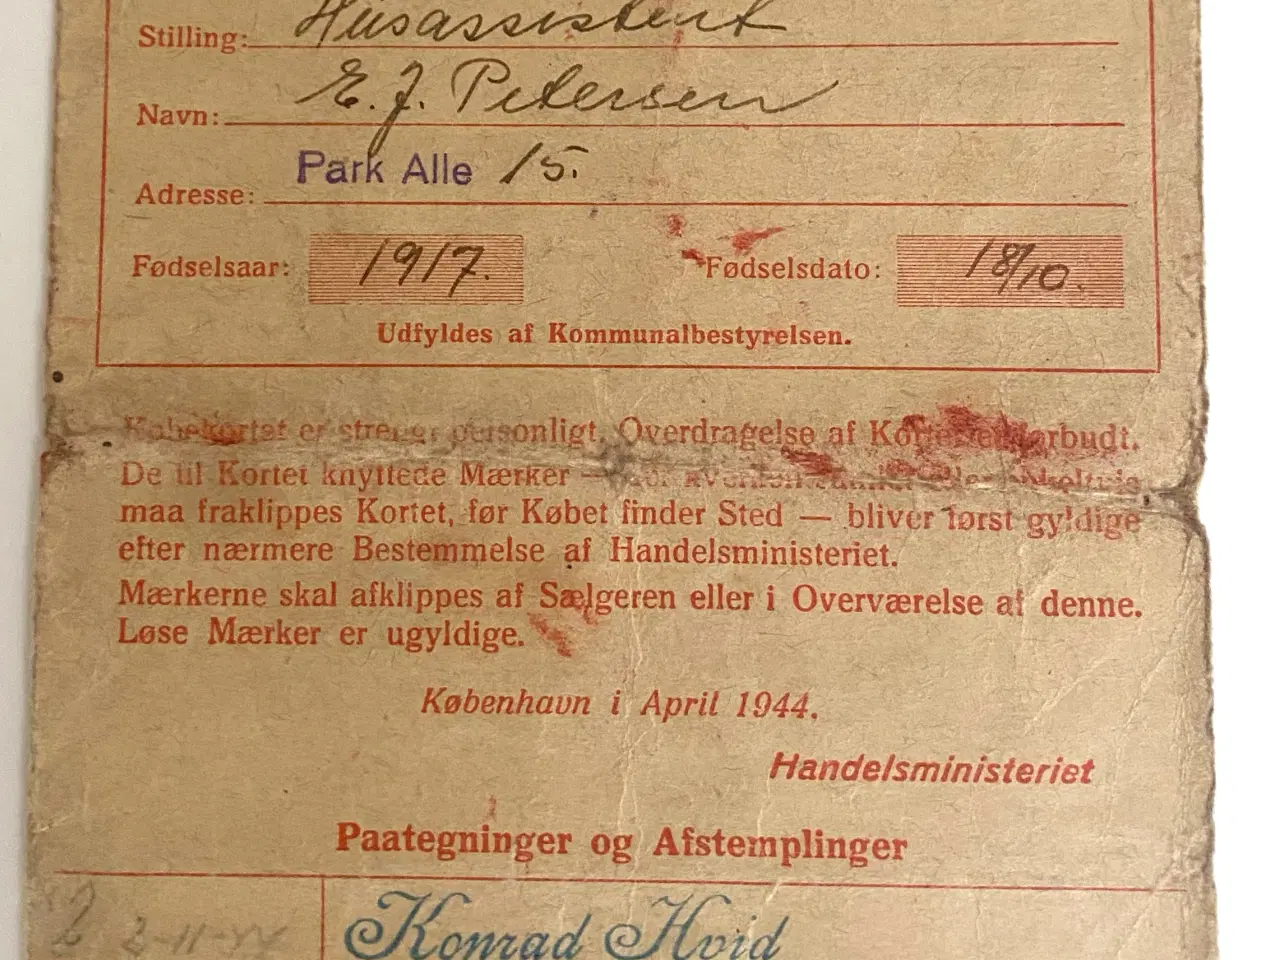 Stilling: Husassistent
Navn: E. J. Petersen
Adresse: Park Alle 15.
Fødselsaar: 1917. Fødselsdato: 18/10.
Udfyldes af Kommunalbestyrelsen.
Købekortet er strengt personligt. Overdragelse af Kortet er forbudt.
De til Kortet knyttede Mærker —
maa fraklippes Kortet, før Købet finder Sted — bliver først gyldige
efter nærmere Bestemmelse af Handelsministeriet.
Mærkerne skal afklippes af Sælgeren eller i Overværelse af denne.
Løse Mærker er ugyldige.
København i April 1944.
Handelsministeriet
Paategninger og Afstemplinger
2 2-11-44 Konrad Hvid